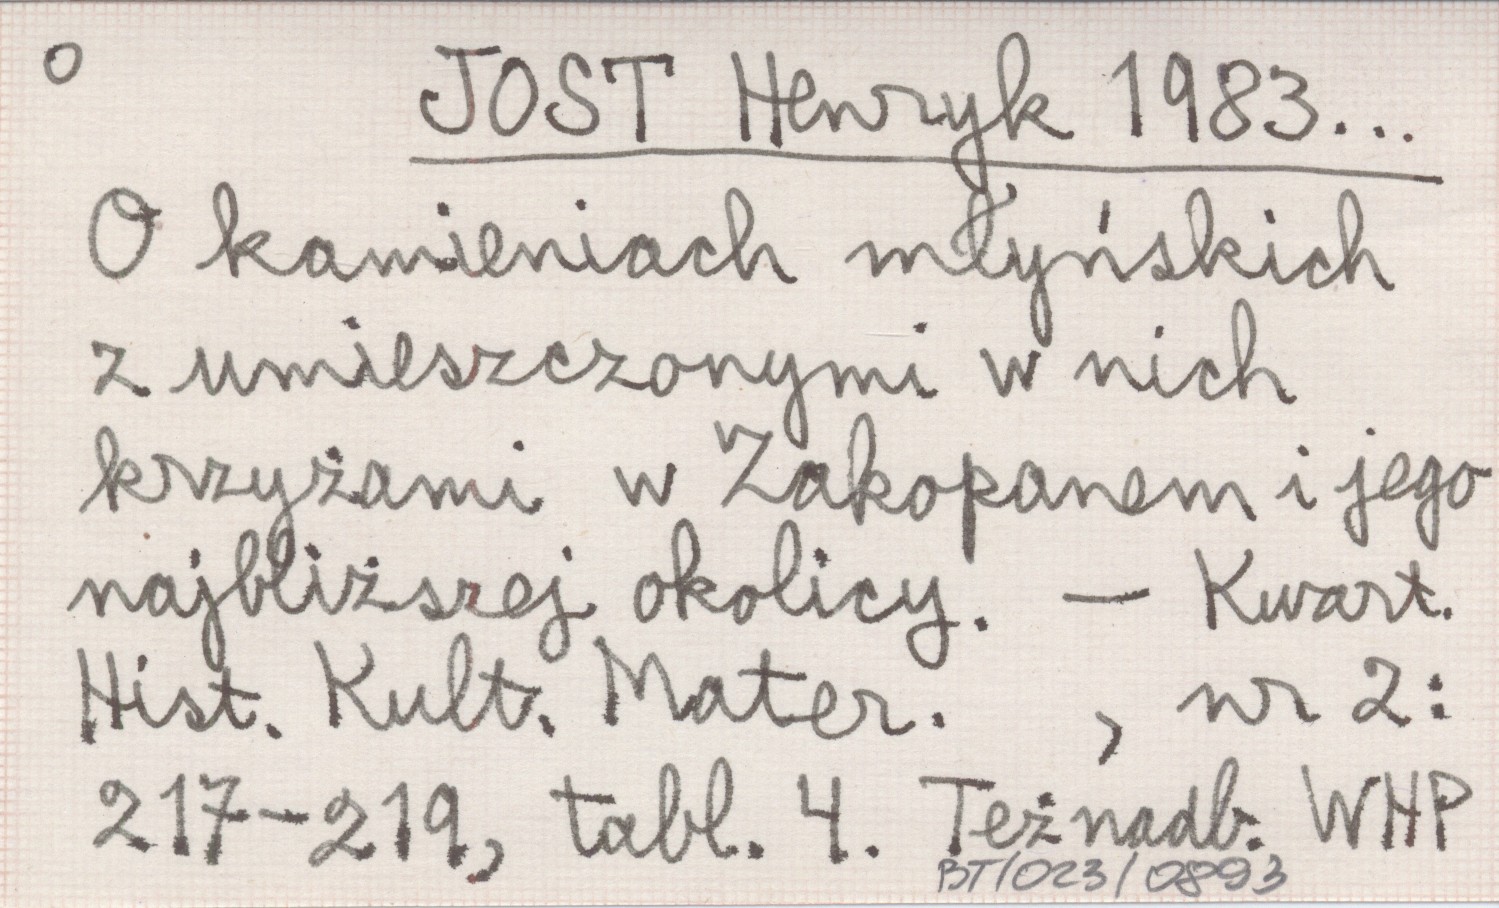 o
JOST Henryk 1983...
O kamieniach młyńskich
z umieszczonymi w nich
krzyżami w Zakopanem i jego
najbliższej okolicy. — Kwart.
Hist. Kult. Mater. , nr 2:
217-219, tabl. 4. Też nadb. WHP
BT/023/0893